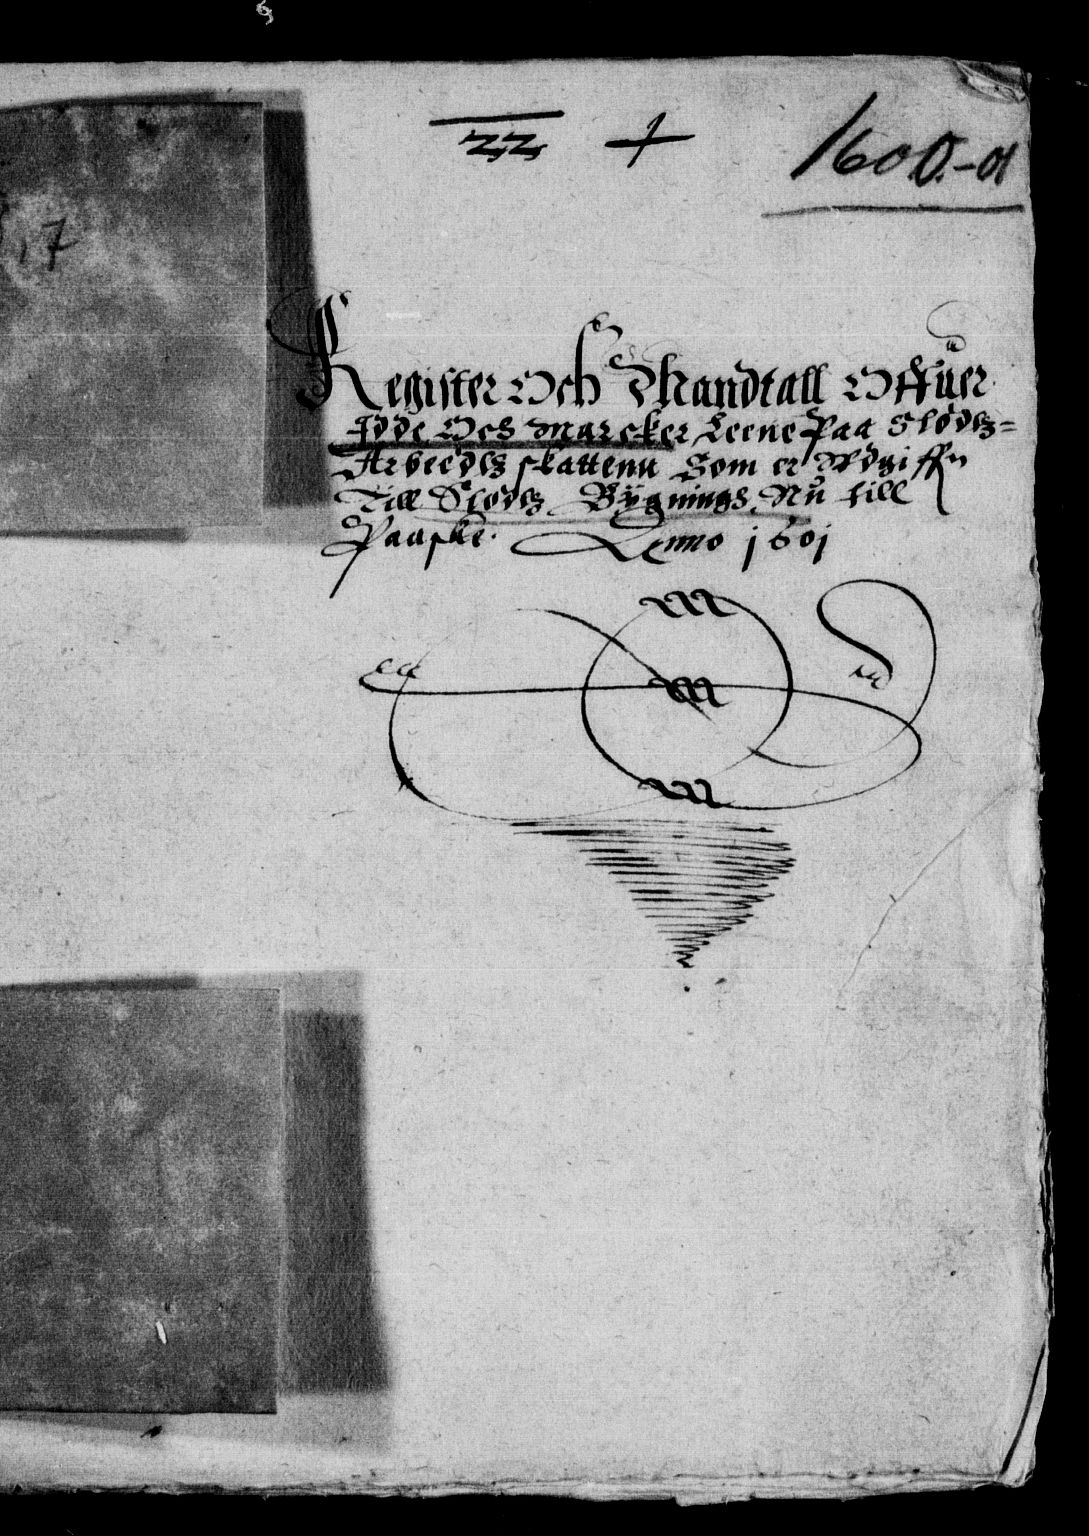 22 +
1600.-01
17
Register Och Mandtall Offuer
Idde Och Marcker Leene Paa Slodtz=
Arbeedtz skattenn Som er Wdgiffn
Till Slodtz Bÿgnings Nu till
Paaske. Anno 1601